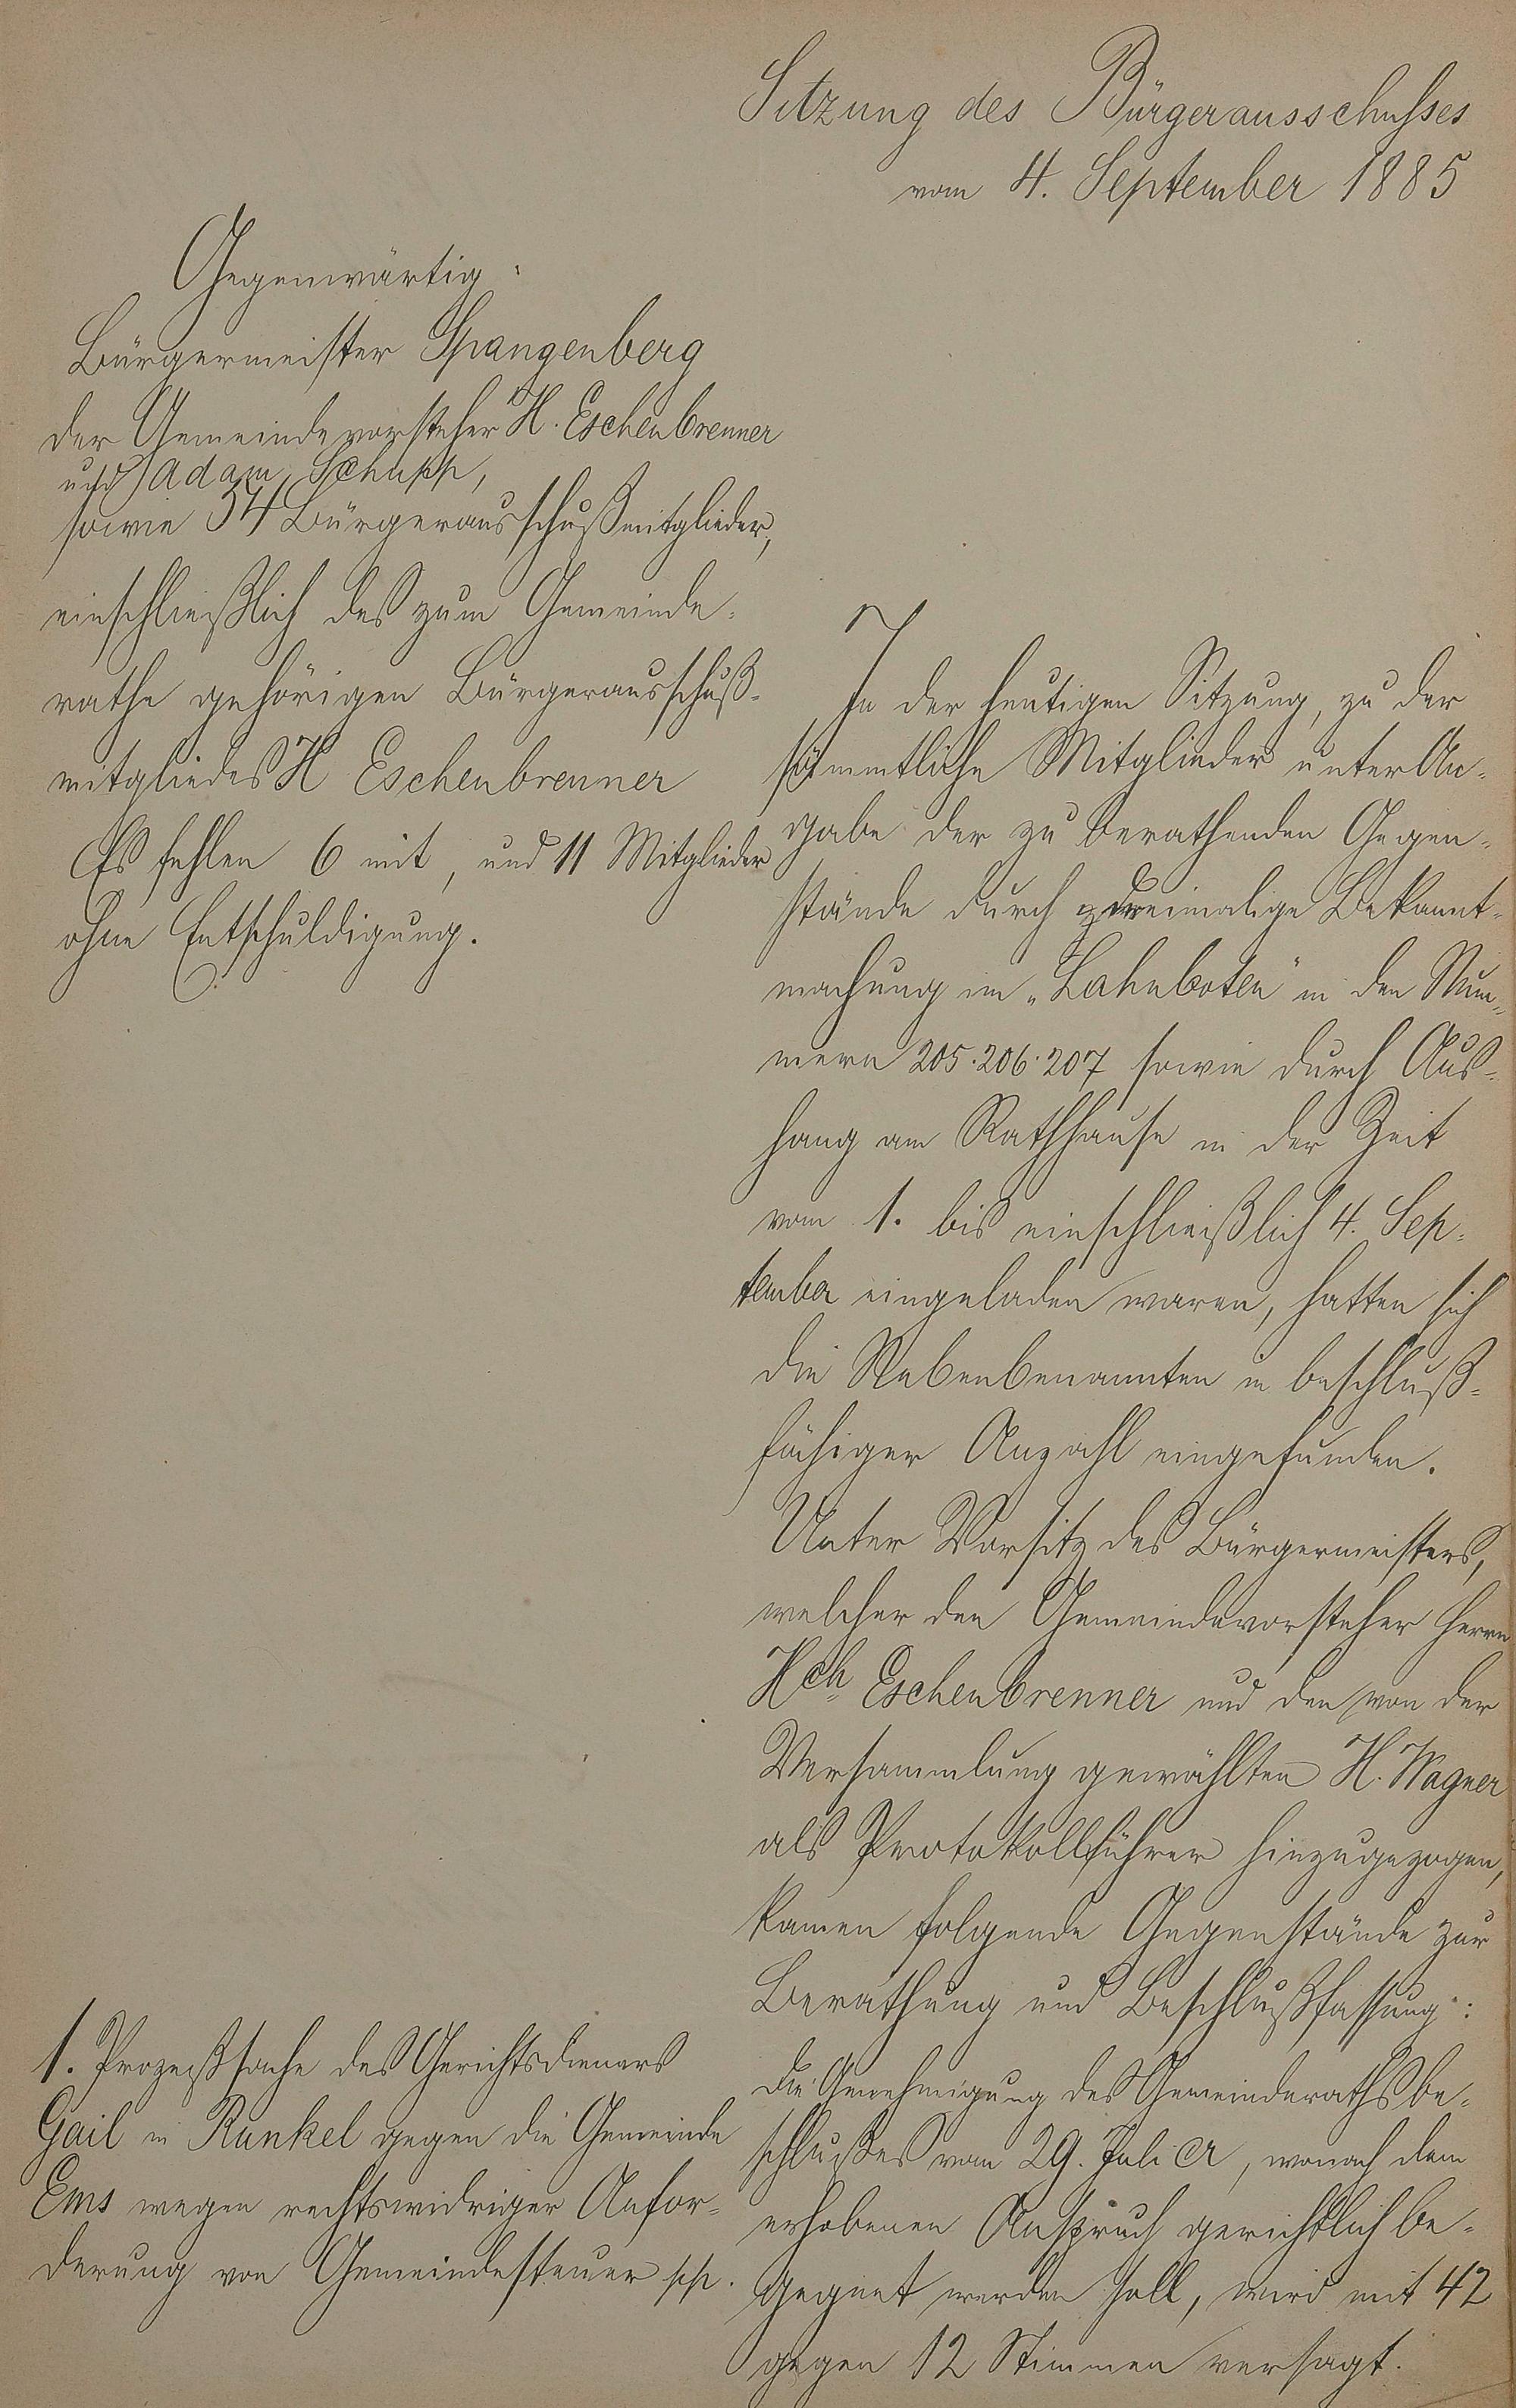 Sitzung des Bürgerausschusses
vom 4. September 1885
Gegenwärtig:
Bürgermeister Spangenberg
der Gemeindevorsteher H. Eschenbrenner
und Adam Schupp,
sowie 54 Bürgerausschußmitglieder,
einschließlich des zum Gemeinde-
rathe gehörigen Bürgerausschuß-
mitgliedes H Eschenbrenner
Es fehlen 6 mit, und 11 Mitglieder
ohne Entschuldigung.
In der heutigen Sitzung, zu der
sämmtliche Mitglieder unter An-
gabe der zu berathenden Gegen-
stände durch dreimalige Bekannt-
machung im „Lahnboten" in den Num-
mern 205. 206. 207 sowie durch Aus-
hang am Rathhause in der Zeit
vom 1. bis einschließlich 4. Sep-
tember eingeladen waren, hatten sich
die Nebenbenannten in beschluß-
fähiger Anzahl eingefunden.
Unter Vorsitz des Bürgermeisters,
welcher den Gemeindevorsteher Herrn
Hch Eschenbrenner und den von der
Versammlung gewählten H. Wagner
als Protokollführer hinzugezogen,
kamen folgende Gegenstände zur
Berathung und Beschlußfassung:
1. Prozeßsache des Gerichtsdieners
Gail in Runkel gegen die Gemeinde
Ems wegen rechtswidriger Anfor-
derung von Gemeindesteuer pp.
Die Genehmigung des Gemeinderathsbe-
schlußes vom 29. Juli cr, wonach dem
erhobenen Anspruch gerichtlich be-
gegnet werden soll, wird mit 42
gegen 12 Stimmen versagt.